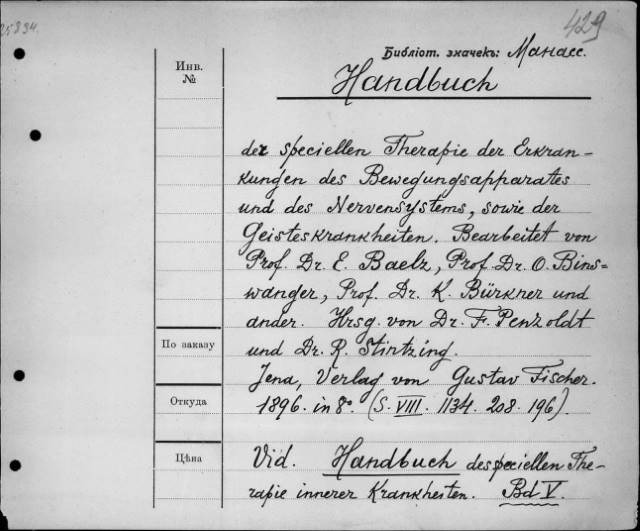 25894.
429
Библіот. значекъ: Манасс.
Инв.
№
Handbuch
der speciellen Therapie der Erkran-
kungen des Bewegungsapparates
und des Nervensystems, sowie der
Geisteskrankheiten. Bearbeitet von
Prof. Dr. E. Baelz, Prof. Dr. O. Bins=
wanger, Prof. Dr. K. Bürkner und
ander. Hrsg. von Dr. F. Penzoldt
По заказу
und Dr. R. Stintzing.
Jena, Verlag von Gustav Fischer.
Откуда
1896. in 8º. (S. VIII. 1134. 208. 196).
Цѣна
Vid. Handbuch des speciellen The-
rapie innerer Krankheiten. Bd V.